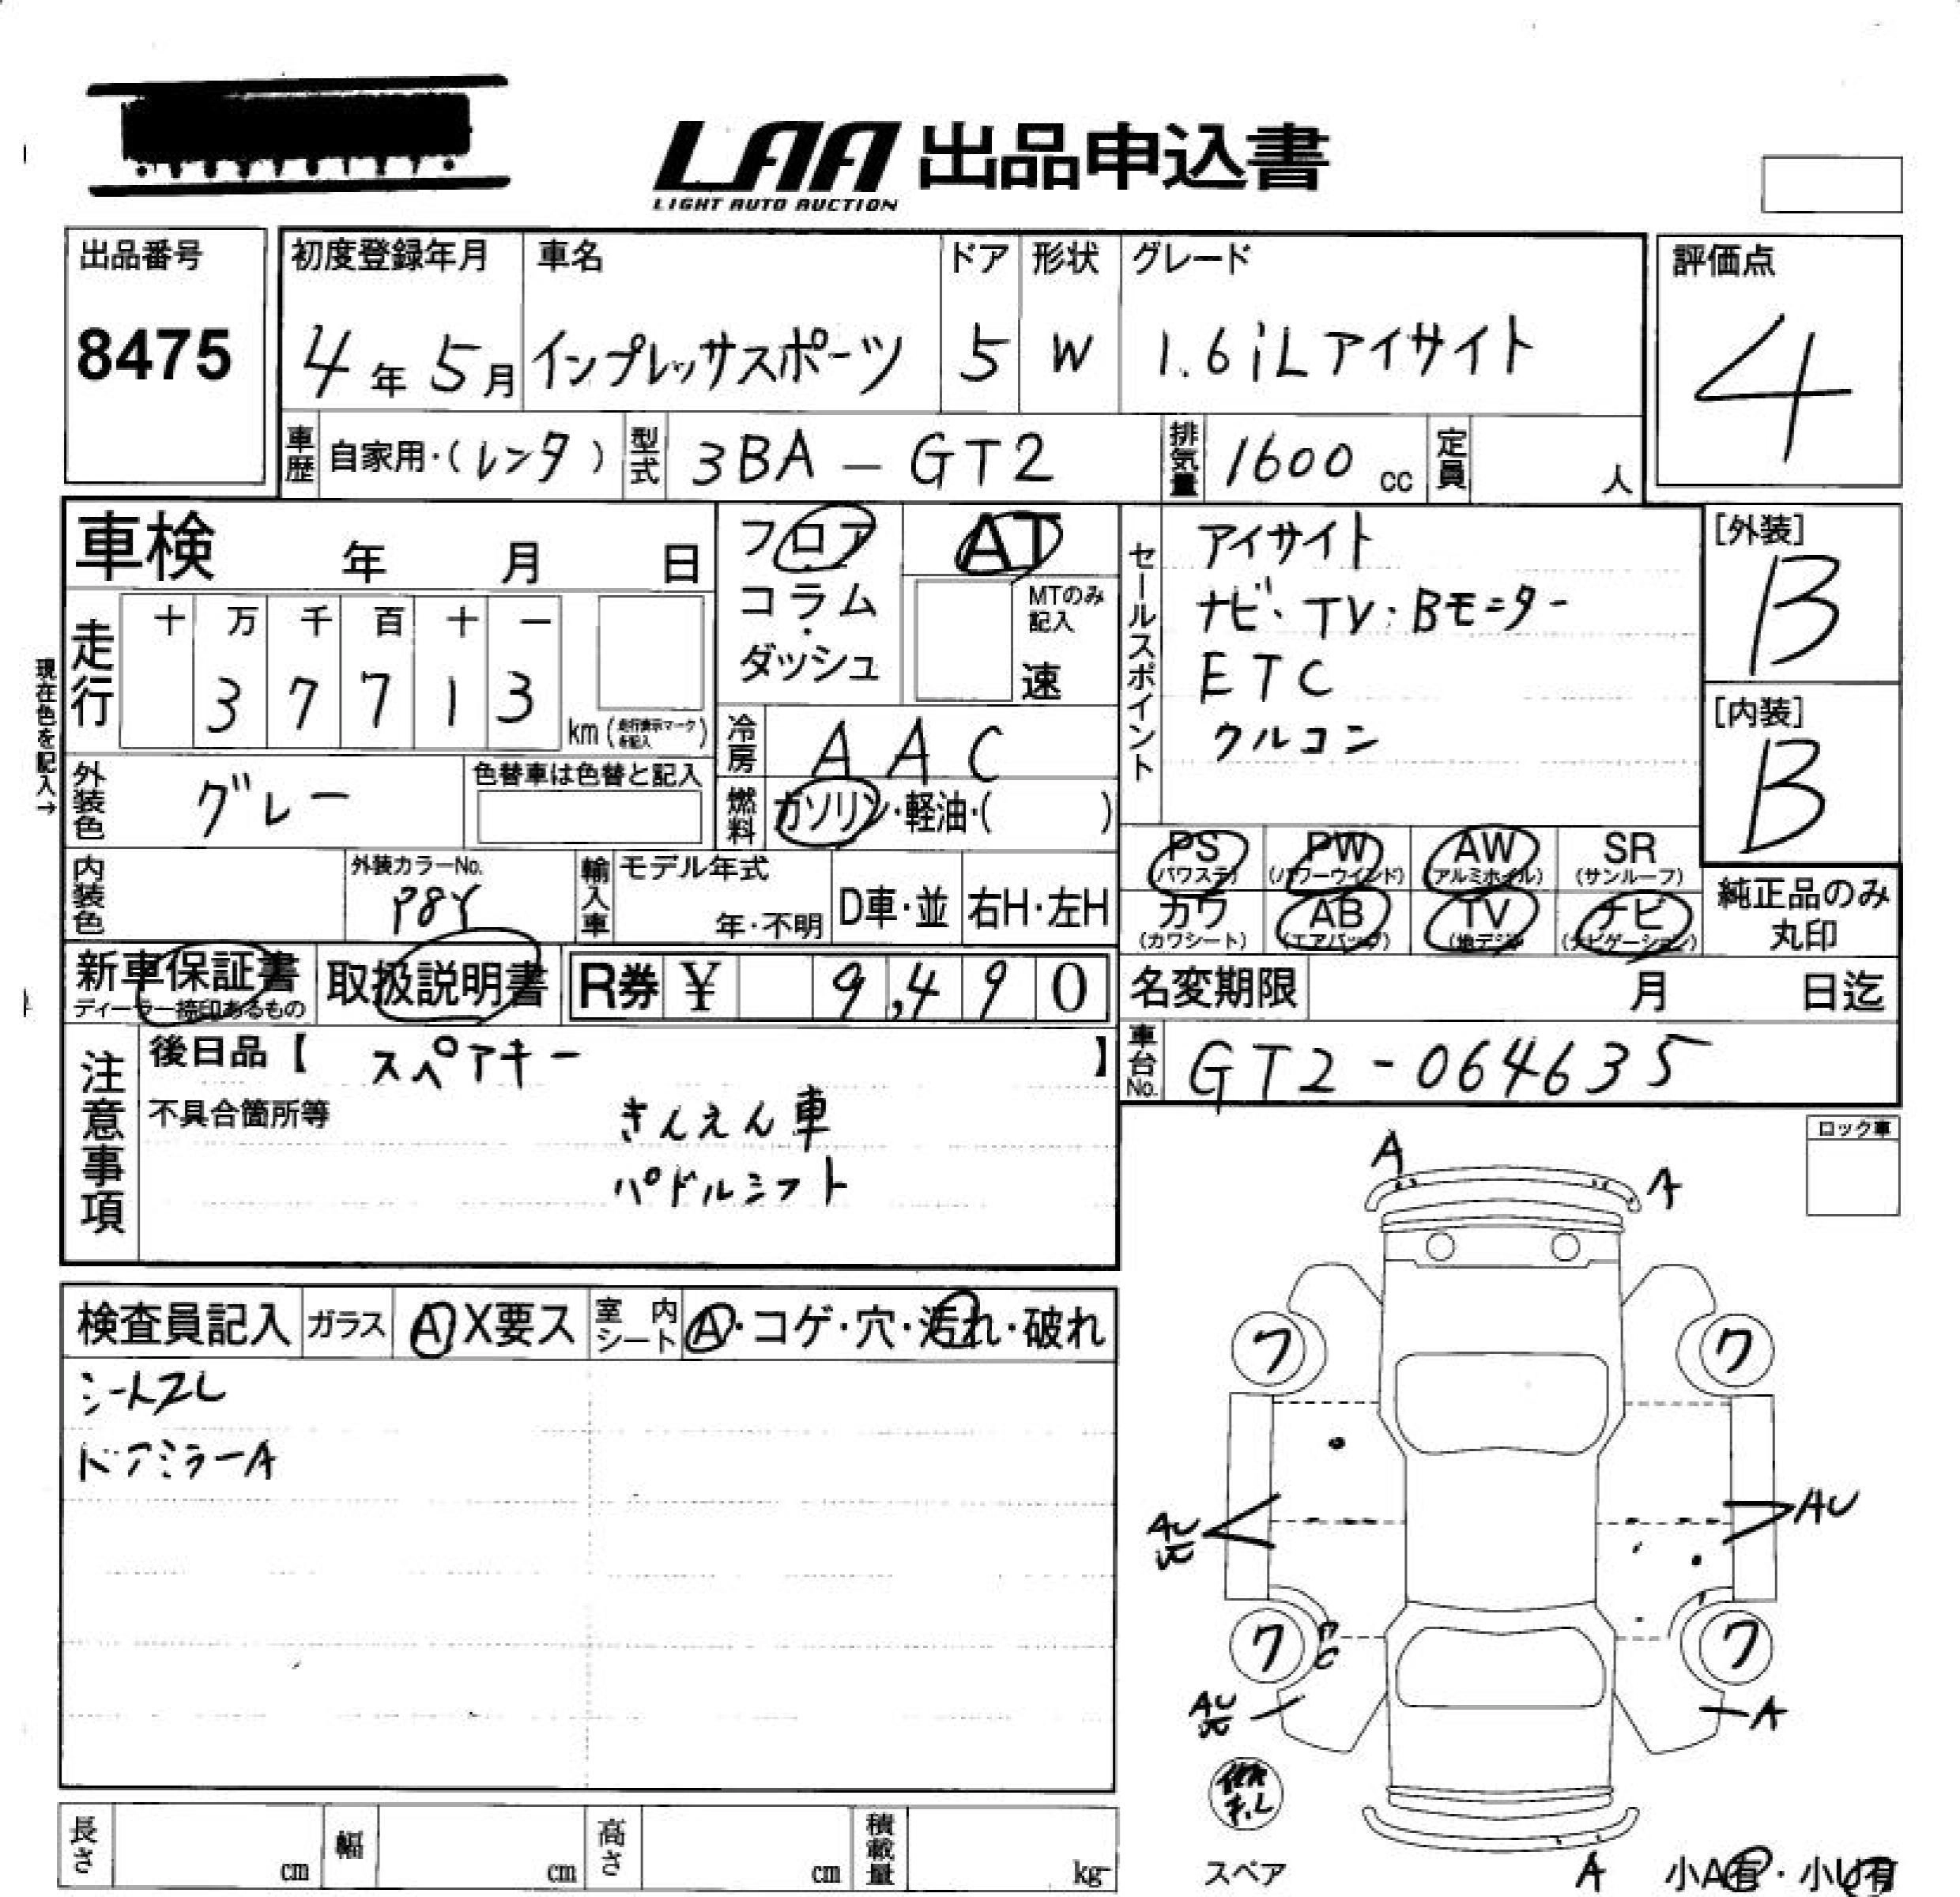 LAA 出品申込書
LIGHT AUTO AUCTION
出品番号
8475
初度登録年月
4年5月
車名
インプレッサスポーツ
ドア
5
形状
W
グレード
1.6iLアイサイト
評価点
4
車歴 自家用・(レンタ)
型式 3BA-GT2
排気量 1600cc
定員 人
車検 年 月 日
フロア
コラム
・
ダッシュ
AT
MTのみ
記入
速
現在色を記入→
走行 十 万 千 百 十 一
3 7 7 1 3
km(走行表示マークを記入)
冷房 AAC
燃料 ガソリン・軽油・( )
外装色 グレー
色替車は色替と記入
セールスポイント
アイサイト
ナビ・TV・Bモニター
ETC
クルコン
[外装]
B
[内装]
B
内装色
外装カラーNo.
P8Y
輸入車 モデル年式
年・不明
D車・並
右H・左H
PS PW AW SR
(パワステ) (パワーウインド) (アルミホイル) (サンルーフ)
カワ AB TV ナビ
(カワシート) (エアバッグ) (地デジ) (ナビゲーション)
純正品のみ
丸印
新車保証書
ディーラー捺印あるもの
取扱説明書
R券 ¥ 9,490
名変期限 月 日迄
車台No. GT2-064635
注意事項
後日品【 スペアキー 】
不具合箇所等
きんえん車
パドルシフト
ロック車
検査員記入 ガラス A X要ス 室内シート A・コゲ・穴・汚れ・破れ
シートスレ
ドアミラーA
A
A
ワ
ワ
AU
AU
ワ
ワ
AU
A
スペア
A
小A有・小U有
長さ cm
幅 cm
高さ cm
積載量 kg